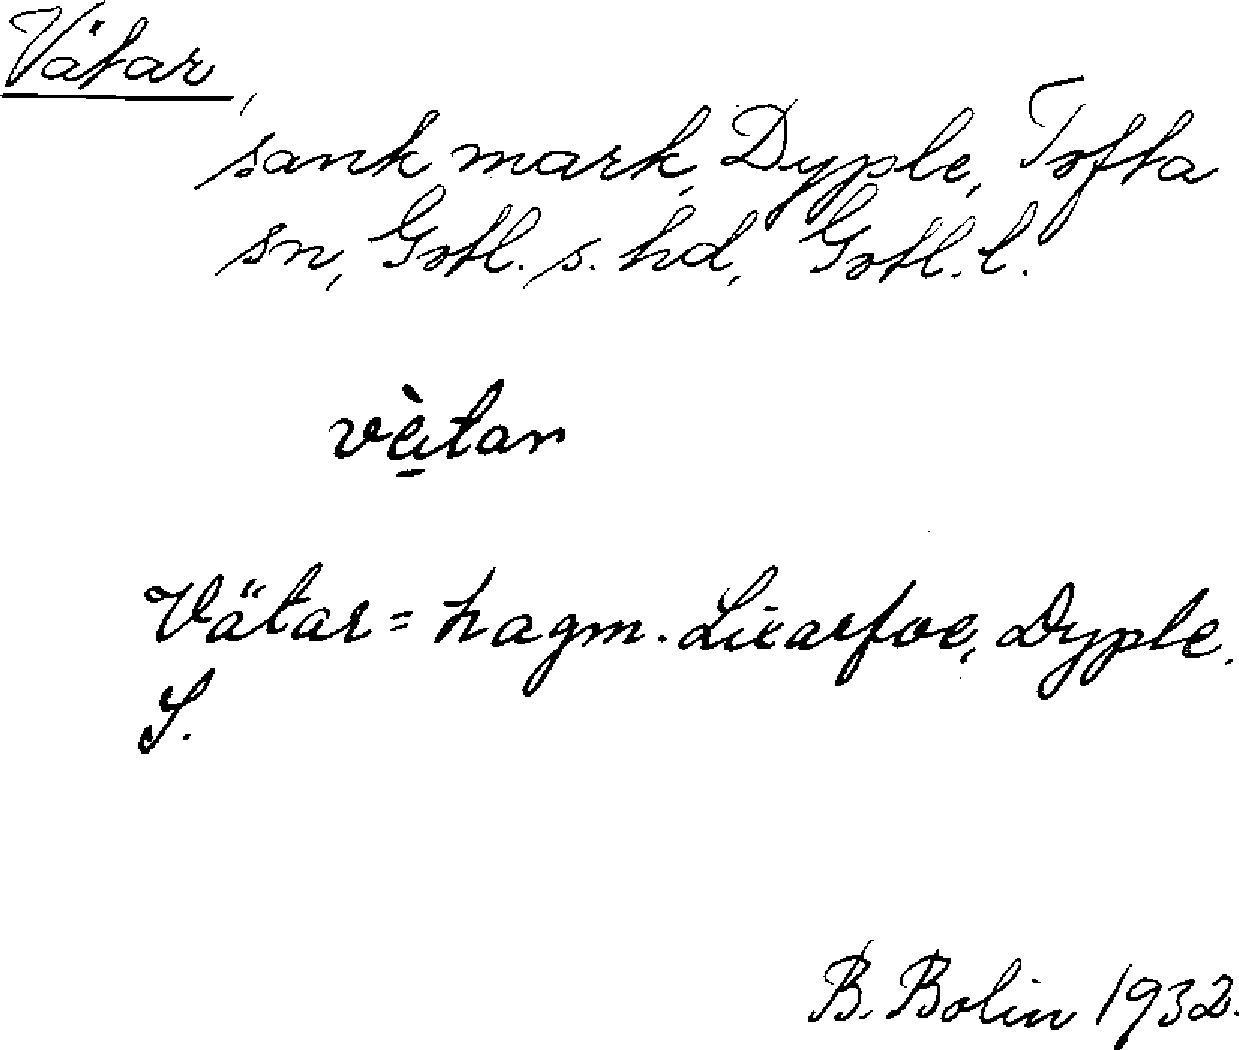 Vätar,
sank mark, Dyple, Tofta
sn, Gotl. s. hd, Gotl. l.
vètar
Vätar = hagm. Lixarfve, Dyple.
S.
B. Bolin 1932.